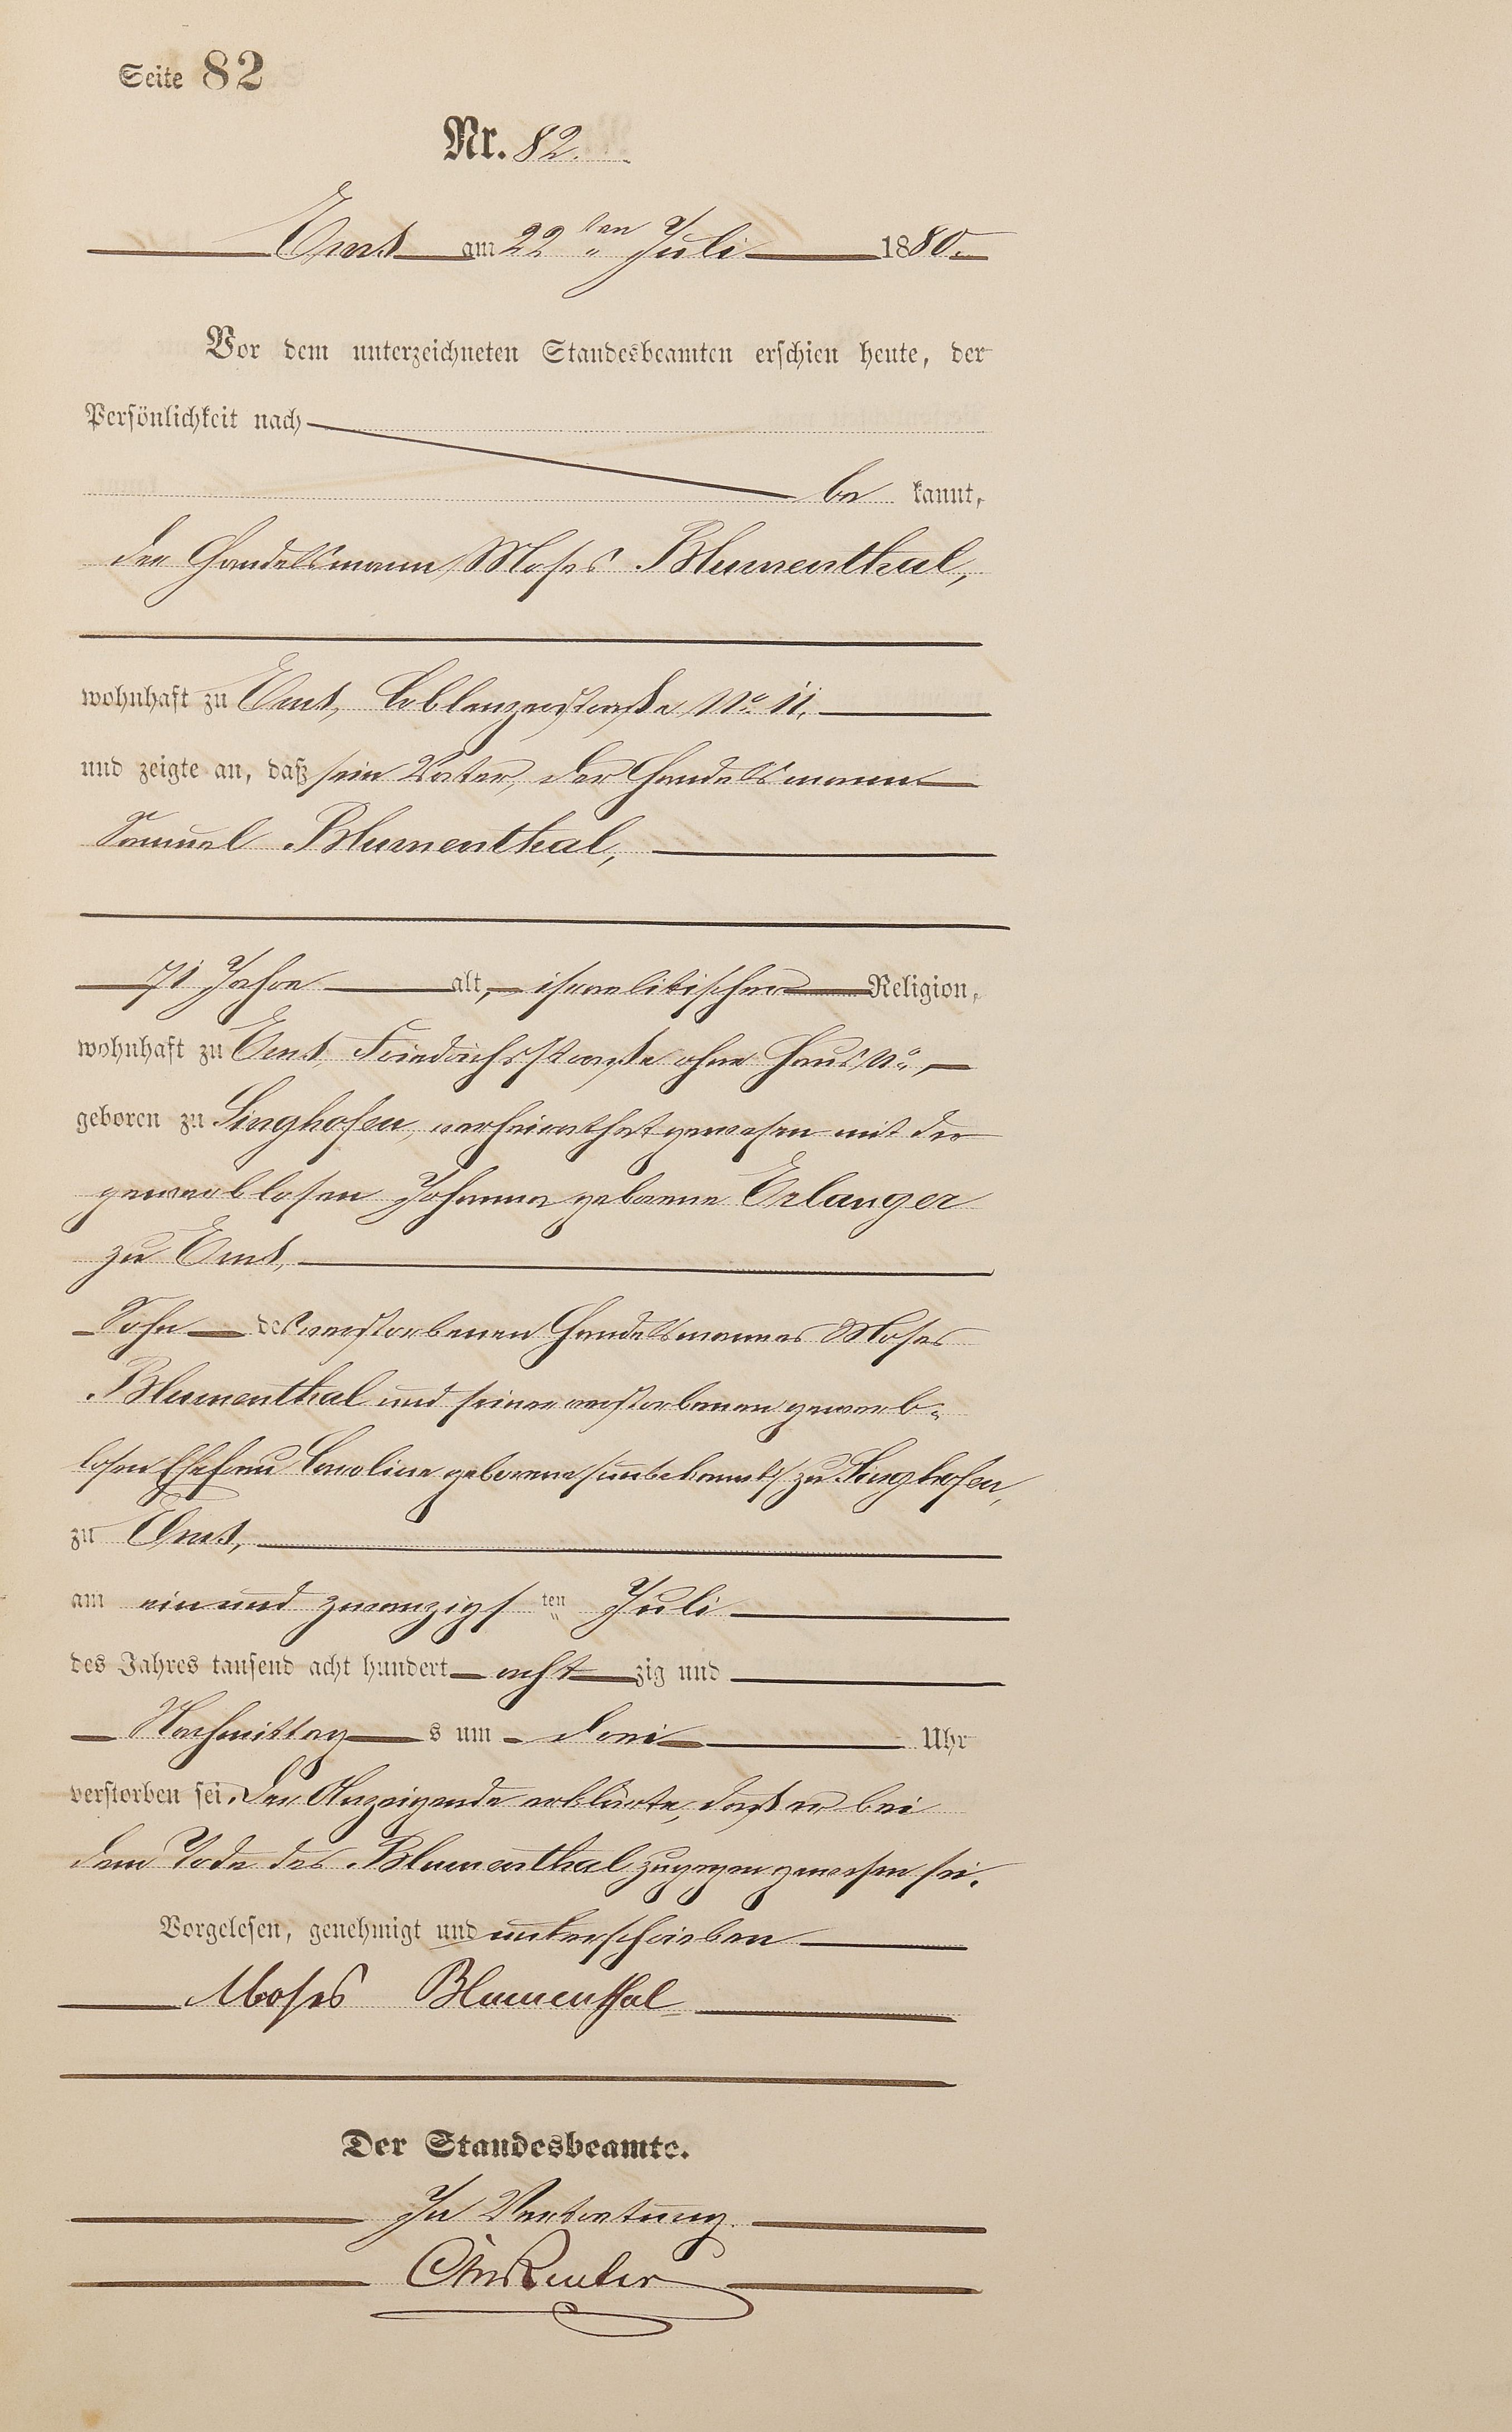 Seite 82
Nr. 82.
Ems am 22 ten Juli 1880.
Vor dem unterzeichneten Standesbeamten erschien heute, der
Persönlichkeit nach
be kannt,
der Handelsmann Moses Blumenthal,
wohnhaft zu Ems, Coblenzerstraße No. 11.
und zeigte an, daß sein Vater, der Handelsmann
Samuel Blumenthal,
71 Jahre alt, israelitischer Religion,
wohnhaft zu Ems, Friedrichsstraße ohne Haus No.,
geboren zu Singhofen, verheirathet gewesen mit der
gewerblosen Johanna geborene Erlanger
zu Ems,
Sohn des verstorbenen Handelsmannes Moses
Blumenthal und seiner verstorbenen gewerb-
losen Ehefrau Caroline geborene /unbekannt/ zu Singhofen,
zu Ems,
am ein und zwanzigs ten Juli
des Jahres tausend acht hundert acht zig und
Nachmittag s um drei Uhr
verstorben sei. Der Anzeigende erklärte, daß er bei
dem Tode des Blumenthal zugegen gewesen sei.
Vorgelesen, genehmigt und unterschrieben
Moses Blumenthal
Der Standesbeamte.
In Vertretung.